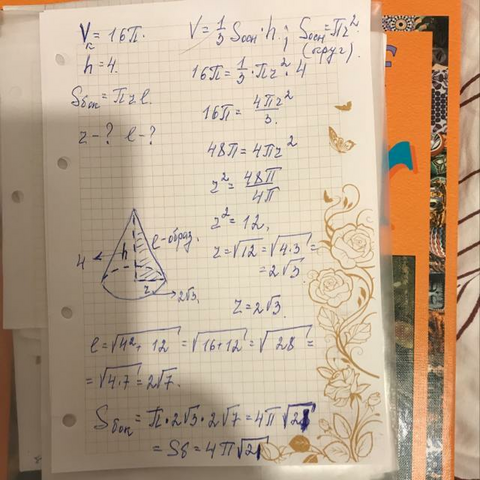 Vк = 16π.
h = 4.
Sбок = πrl.
r - ? l - ?
V = 1/3 Sосн · h ; Sосн = πr².
(круг).
16π = 1/3 · πr² · 4
16π = 4πr²/3.
48π = 4πr²
r² = 48π/4π
r² = 12,
r = √12 = √4·3 =
= 2√3
r = 2√3.
4
h
l - образ.
r
2√3.
l = √4² + 12 = √16 + 12 = √28 =
= √4·7 = 2√7.
Sбок = π · 2√3 · 2√7 = 4π√21
= Sб = 4π√21